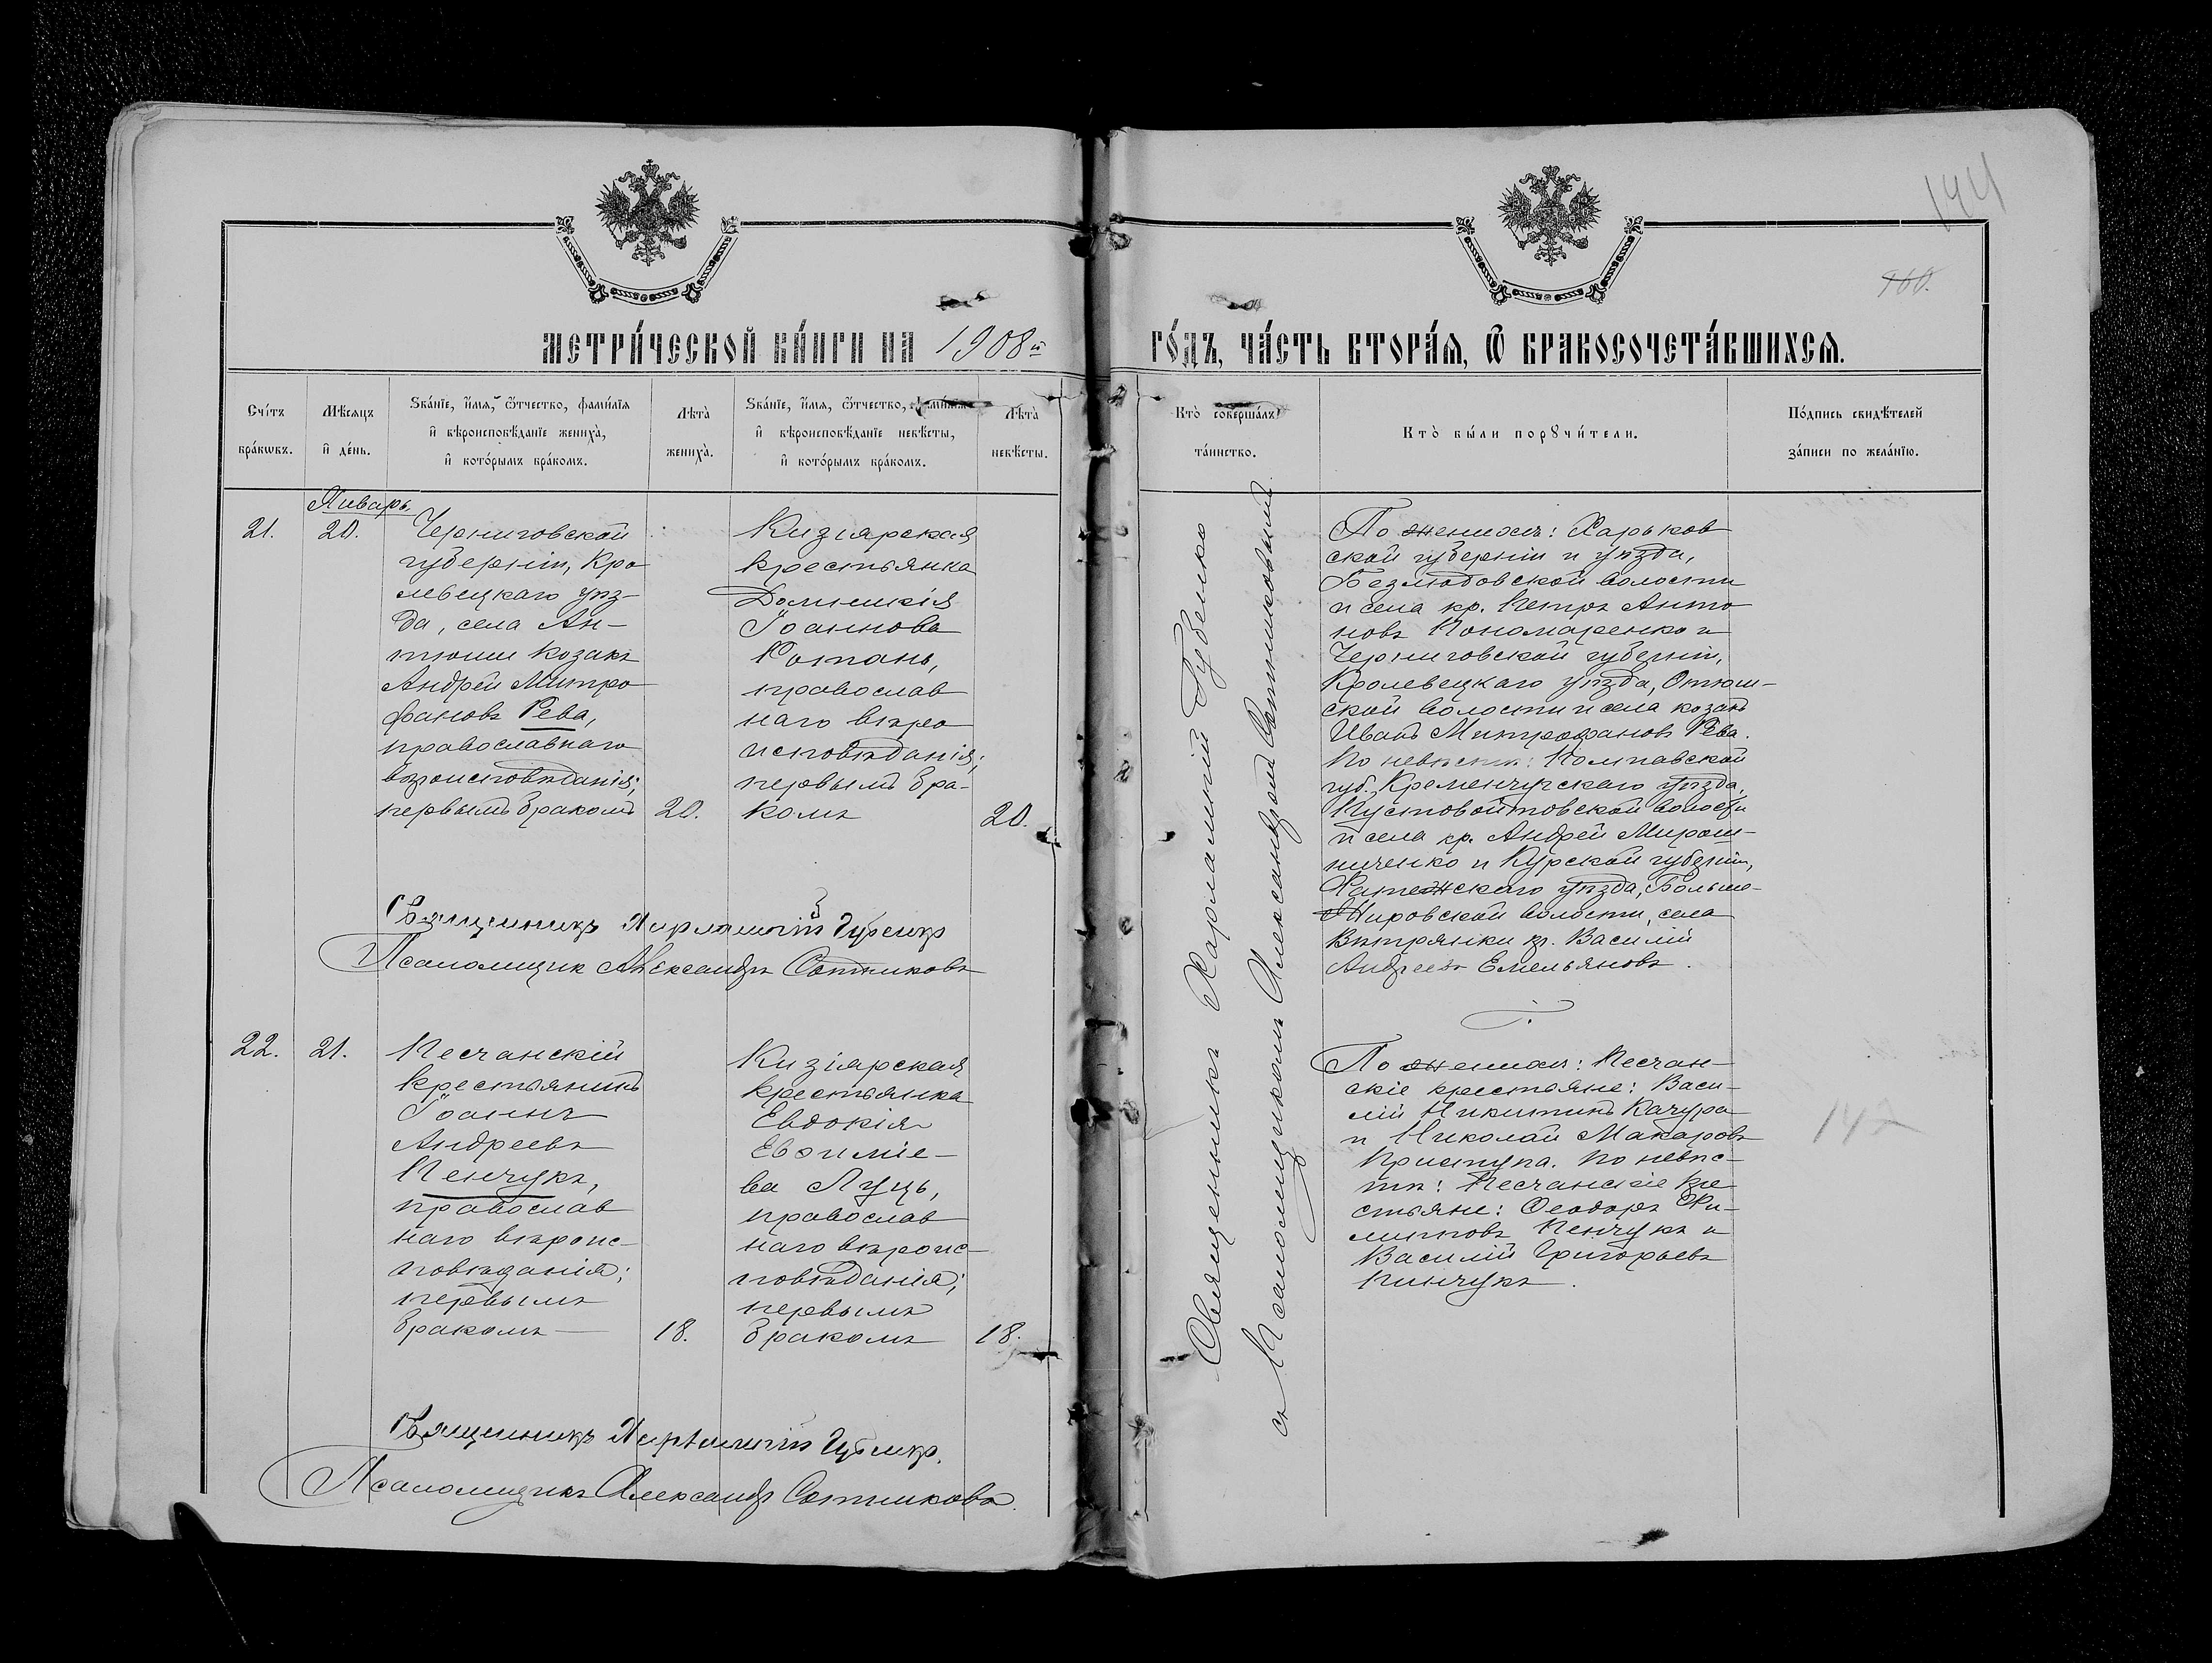 144
160.
МЕТРИ́ЧЕСКОЙ КНИ́ГИ НА 1908й
ГО́ДЪ, ЧА́СТЬ ВТОРА́Я, Ѽ БРАКОСОЧЕТА́ВШИХСЯ.
Сче́тъ бра́кѡвъ.
Мѣ́сяцъ и де́нь.
Ѕва́нїе, и́мя, ѻ́тчество, фами́лїя
и вѣроисповѣ́данїе жениха̀,
и кото́рымъ бра́комъ.
Лѣта̀ жениха̀.
Ѕва́нїе, и́мя, ѻ́тчество, фами́лїя
и вѣроисповѣ́данїе невѣ́сты,
и кото́рымъ бра́комъ.
Лѣта̀ невѣ́сты.
Кто̀ соверша́лъ та́инство.
Кто̀ бы́ли порꙋчи́тели.
По́дпись свидѣ́телей
за́писи по жела́нїю.
Январь
21.
20.
Черниговской
губерніи, Кро
левецкаго уѣз-
да, села Ан-
тюши козакъ
Андрей Митро
фановъ Рева,
православнаго
вѣроисповѣданія;
первымъ бракомъ
20.
Кизіярская
крестьянка
Домникія
Іоаннова
Котань,
православ
наго вѣро
исповѣданія;
первымъ бра-
комъ
20.
Священникъ Харлампій Губенко
съ Псаломщикомъ Александромъ Сотниковымъ
По женихѣ: Харьков
ской губерніи и уѣзда,
Безлюдовской волости
и села кр. Петръ Анто
новъ Пономаренко и
Черниговской губерніи,
Кролевецкаго уѣзда, Отюш-
ской волости и села козакъ
Иванъ Митрофановъ Рева.
По невѣстѣ: Полтавской
губ. Кременчугскаго уѣзда,
Пустовойтовской волости
и села кр. Андрей Мирош-
ниченко и Курской губерніи,
Фатежскаго уѣзда, Больше-
Жировской волости, села
Вѣтрянки кр. Василій
Андреевъ Емельяновъ.
Священникъ Харлампій Губенко
Псаломщик Александръ Сотниковъ
22.
21.
Песчанскій
крестьянинъ
Іоаннъ
Андреевъ
Пенчукъ,
православ
наго вѣроис-
повѣданія;
первымъ
бракомъ
18.
Кизіярская
крестьянка
Евдокія
Евѳиміе-
ва Луць,
православ
наго вѣроис-
повѣданія;
первымъ
бракомъ
18.
По женихѣ: Песчан-
скіе крестьяне: Васи-
лій Никитинъ Качура
и Николай Макаровъ
Приступа. По невѣс-
тѣ: Песчанскіе кре
стьяне: Ѳеодоръ Фи-
липповъ Пенчукъ и
Василій Григорьевъ
Пинчукъ.
142
Священникъ Харлампій Губенко.
Псаломщикъ Александръ Сотниковъ.